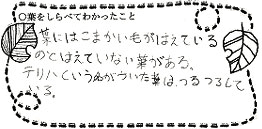 ○葉をしらべてわかったこと
葉にはこまかい毛がはえている
のとはえていない葉がある。
テリハという名がついた葉は、つるつるして
いる。